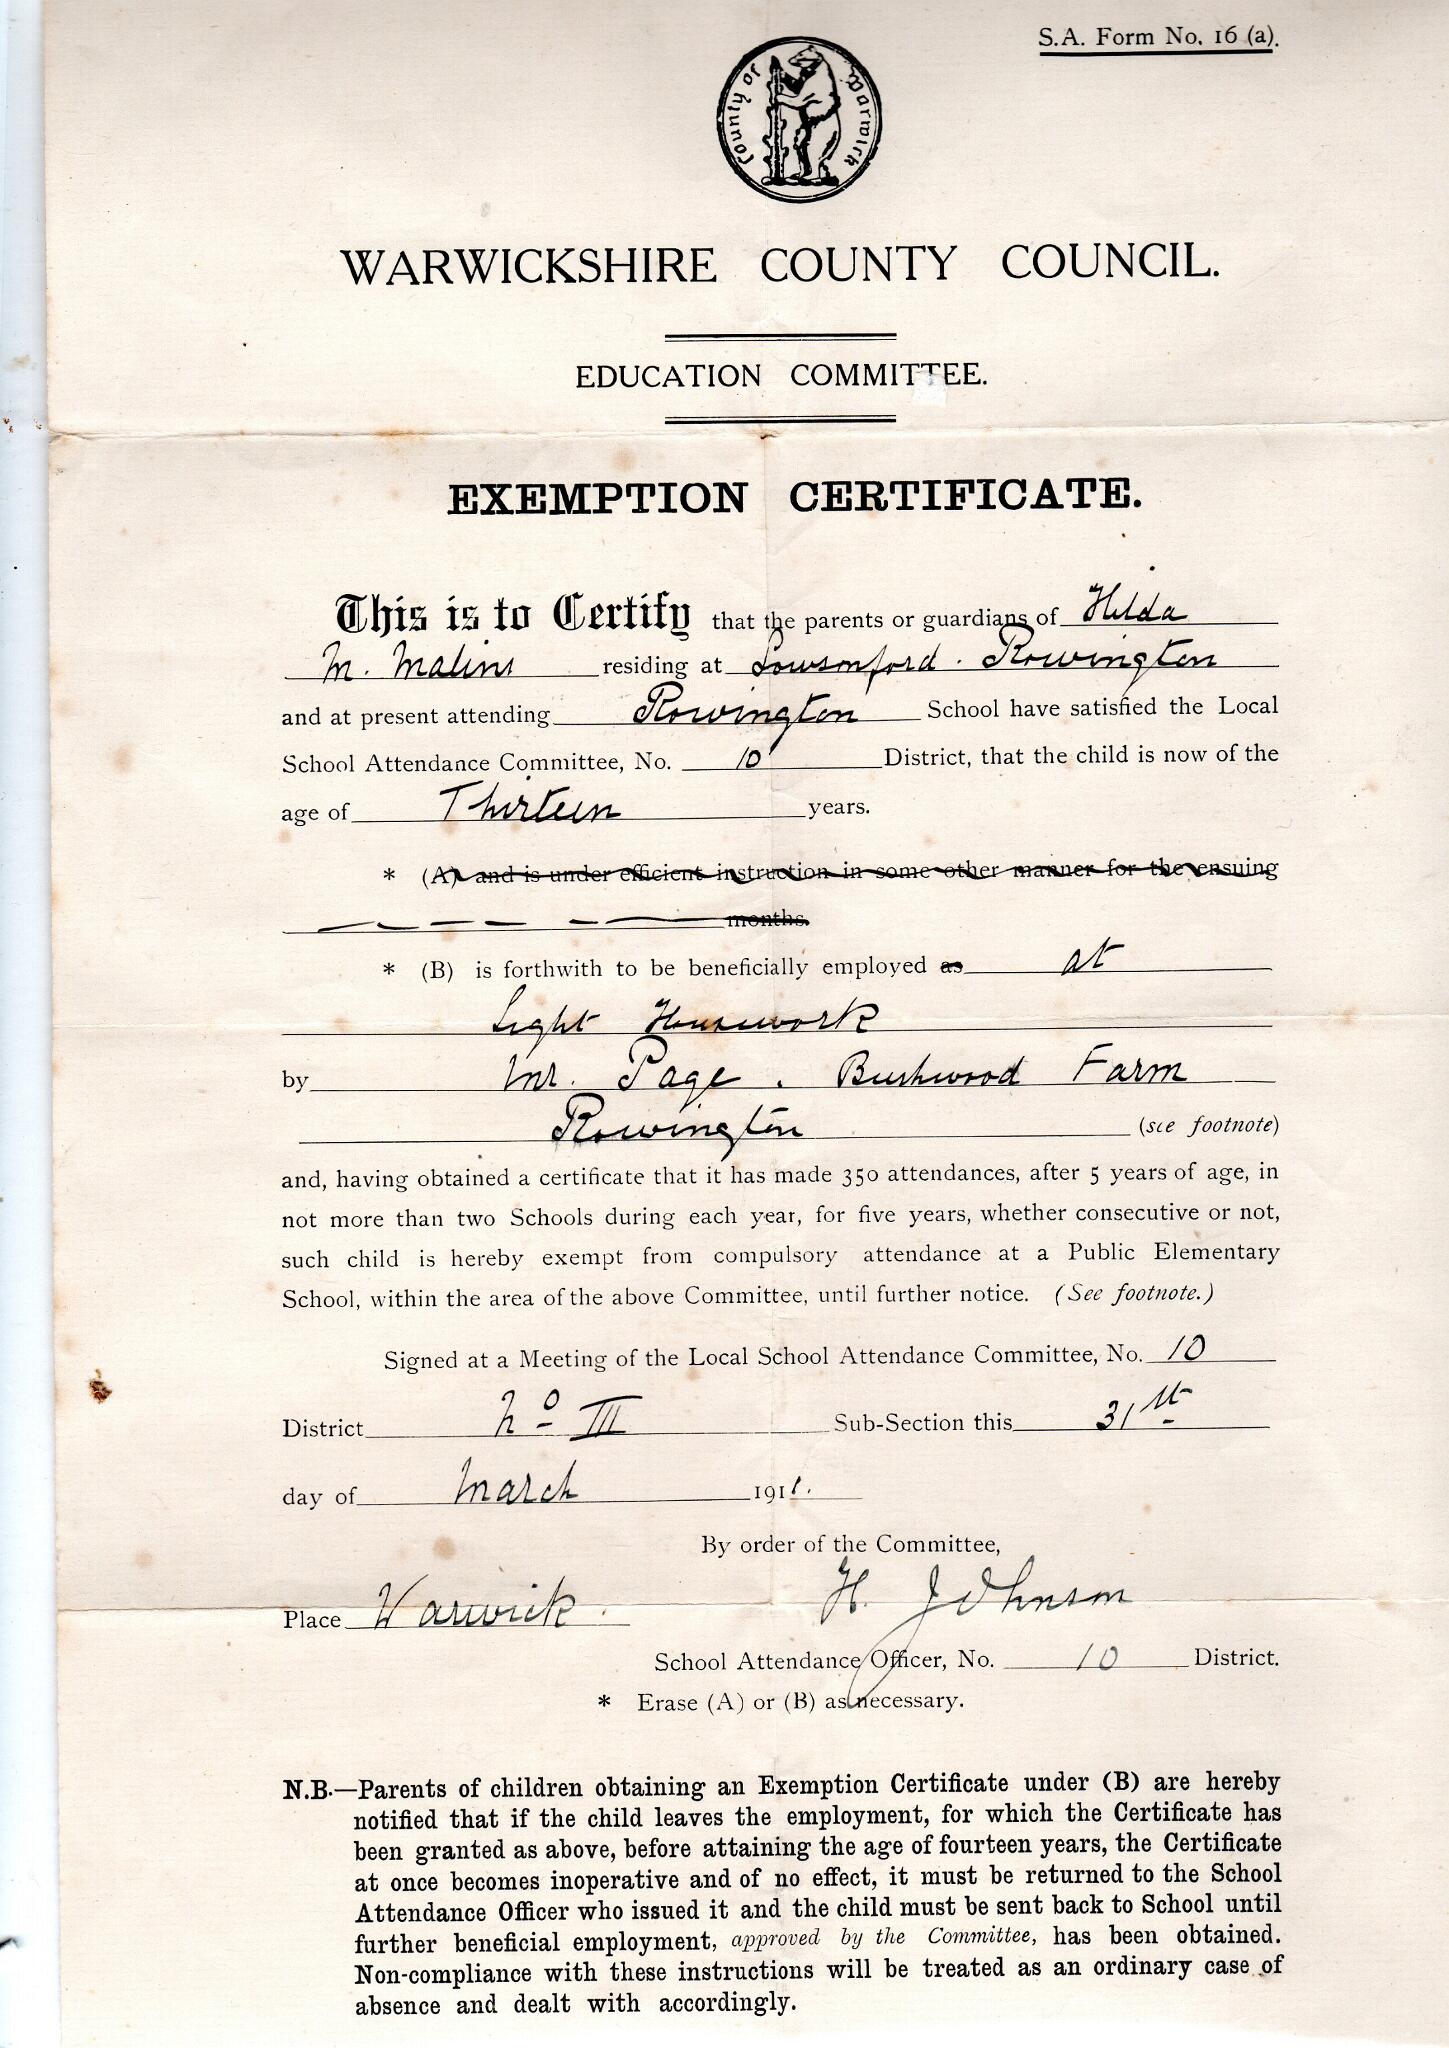 S.A. Form No. 16 (a).
County of Warwick
WARWICKSHIRE COUNTY COUNCIL.
EDUCATION COMMITTEE.
EXEMPTION CERTIFICATE.
This is to Certify that the parents or guardians of Hilda
M. Malins residing at Lowsonford. Rowington
and at present attending Rowington School have satisfied the Local
School Attendance Committee, No. 10 District, that the child is now of the
age of Thirteen years.
* (A) and is under efficient instruction in some other manner for the ensuing
months.
* (B) is forthwith to be beneficially employed as at
Light Housework
by Mr. Page. Bushwood Farm
Rowington (see footnote)
and, having obtained a certificate that it has made 350 attendances, after 5 years of age, in
not more than two Schools during each year, for five years, whether consecutive or not,
such child is hereby exempt from compulsory attendance at a Public Elementary
School, within the area of the above Committee, until further notice. (See footnote.)
Signed at a Meeting of the Local School Attendance Committee, No. 10
District No III Sub-Section this 31st
day of March 1911.
By order of the Committee,
Place Warwick. H. Johnson
School Attendance Officer, No. 10 District.
* Erase (A) or (B) as necessary.
N.B.—Parents of children obtaining an Exemption Certificate under (B) are hereby
notified that if the child leaves the employment, for which the Certificate has
been granted as above, before attaining the age of fourteen years, the Certificate
at once becomes inoperative and of no effect, it must be returned to the School
Attendance Officer who issued it and the child must be sent back to School until
further beneficial employment, approved by the Committee, has been obtained.
Non-compliance with these instructions will be treated as an ordinary case of
absence and dealt with accordingly.